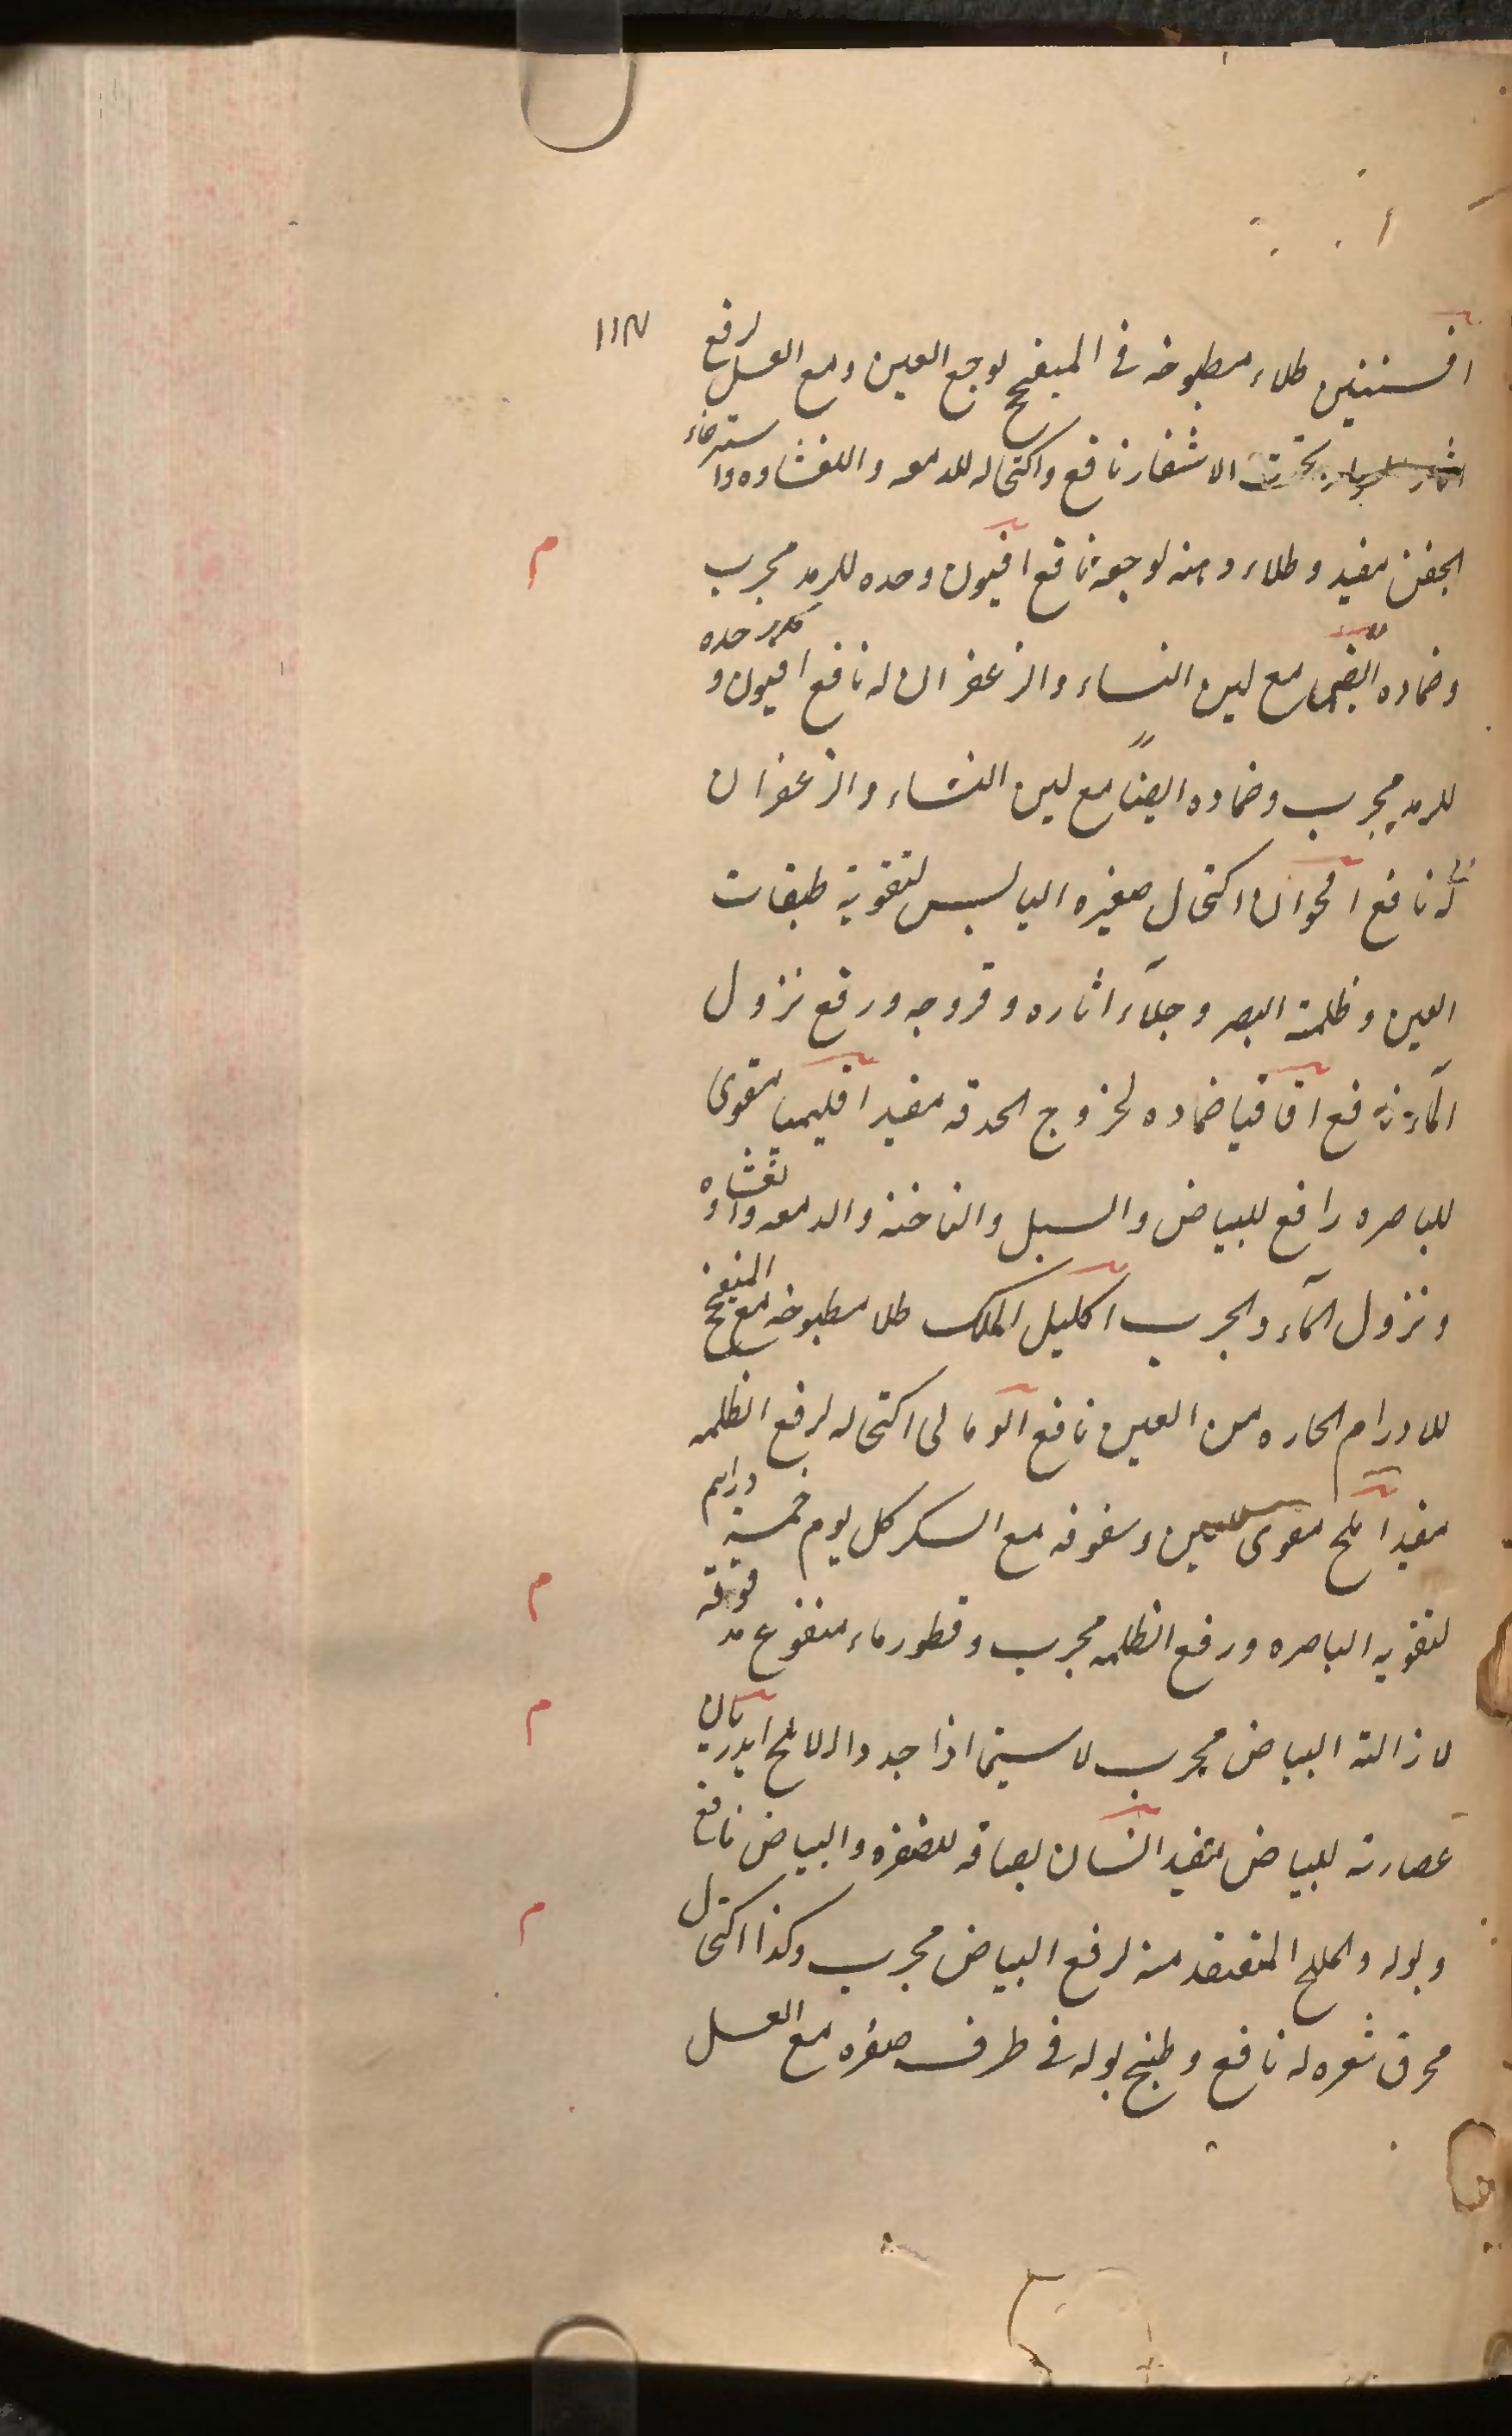 افسنتين طلاء مطبوخه فى الميفختج لوجع العين ومع العسل لرفع
تحت الاشفار نافع واكتحاله للدمعه والغشاوه واسترخاء
الجفن مفيد وطلاء دهنه لوجعه نافع افيون وحده للرمد مجرب
وضماده ايضا مع لبن النساء والزعفران له نافع افيون وحده
للرمد مجرب وضماده ايضاً مع لبن النساء والزعفران
له نافع اقحوان اكتحال صغيره اليابس لتقوية طبقات
العين وظلمة البصر وجلآء اثاره وقروحه ورفع نزول
المآء نافع اقاقيا ضماده لخروج الحدقه مفيد اقليميا مقوى
للباصره رافع للبياض والسبل والناخنه والدمعه والغشاوه
ونزول المآء والجرب اكليل الملك طلا مطبوخه مع الميفختج
للاورام الحاره من العين نافع الومالى اكتحاله لرفع الظلمه
مفيد املج مقوى للعين وسفوفه مع السكر كل يوم خمسة دراهم
لتقويه الباصره ورفع الظلمه مجرب وقطور ماء منقوع مدقوقه
لازالة البياض مجرب لا سيما اذا جدد الاملج اندريان
عصارته للبياض مفيد انسان بصاقه للصفره والبياض نافع
وبوله والملح المنعقد منه لرفع البياض مجرب وكذا اكتحال
محرق شعره له نافع وطبخ بوله فى ظرف صفره مع العسل
م
م
م
م